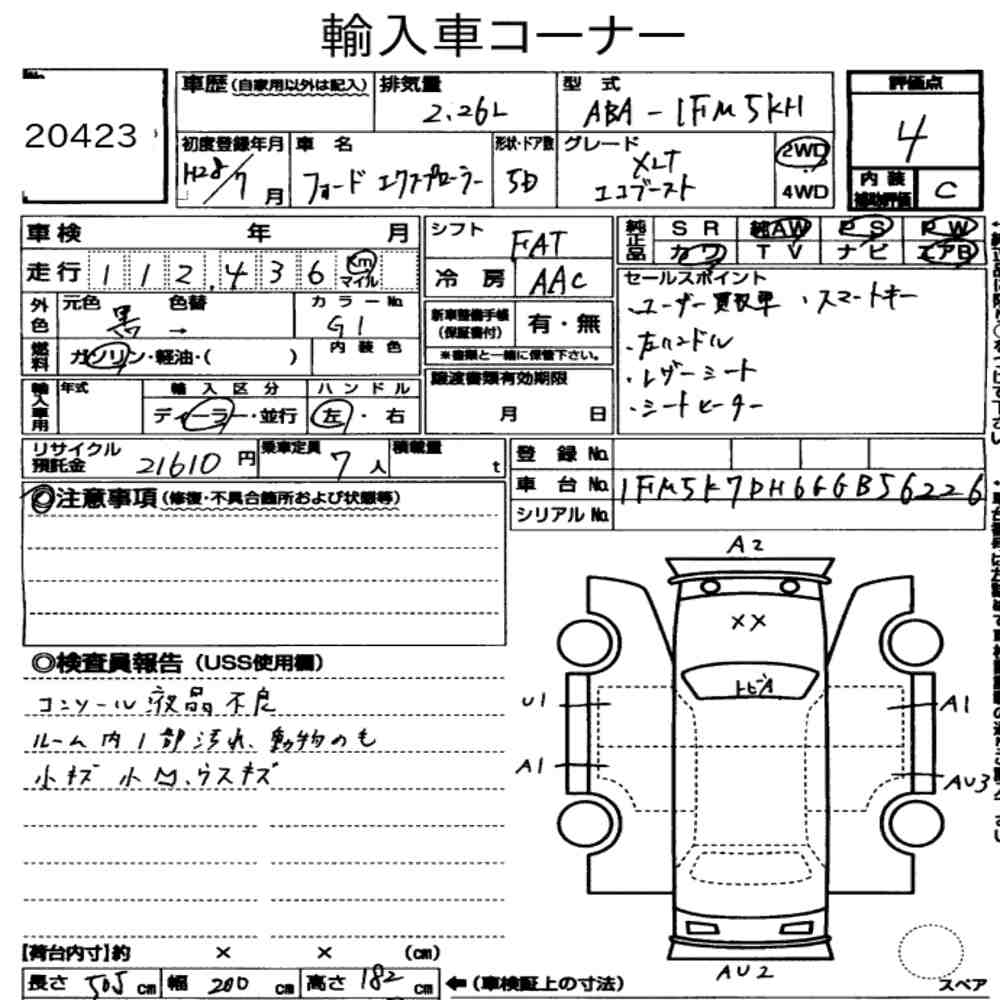 輸入車コーナー
No.
20423
車歴(自家用以外は記入)
排気量
2.26L
型 式
ABA-1FM5KH
評価点
4
内装補助評価
C
初度登録年月
H28/7月
車 名
フォード エクスプローラー
形状・ドア数
5D
グレード
XLT
エコブースト
2WD
4WD
車検 年 月
走行 112,436 Km マイル
外色
元色 黒
色替 →
カラーNo.
G1
燃料
ガソリン・軽油・( )
内装色
輸入車用
年式
輸入区分
ディーラー・並行
ハンドル
左・右
シフト FAT
冷房 AAC
新車整備手帳(保証書付) 有・無
※書類と一緒に保管下さい。
譲渡書類有効期限
月 日
純正品
SR 純AW PS PW
カワ TV ナビ エアB
セールスポイント
・ユーザー買取車 ・スマートキー
・左ハンドル
・レザーシート
・シートヒーター
リサイクル預託金 21610円
乗車定員 7人
積載量 t
登録No.
車台No. 1FM5K7DH6GGB56226
シリアルNo.
◎注意事項(修復・不具合箇所および状態等)
◎検査員報告(USS使用欄)
コンソール液晶不良
ルーム内1部汚れ、動物のも
小キズ 小凹、ウスキズ
A2
XX
トビA
U1
A1
A1
AU3
AU2
スペア
【荷台内寸】約 × × (cm)
長さ 505 cm 幅 200 cm 高さ 182 cm
←(車検証上の寸法)